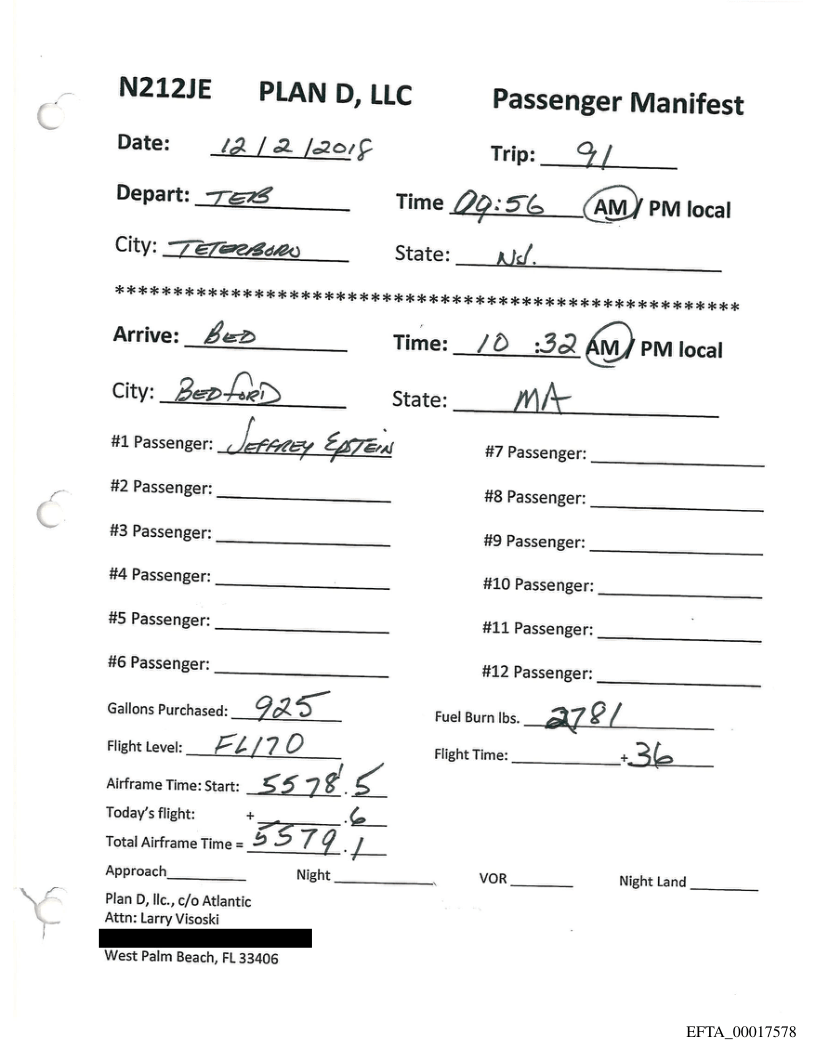 N212JE PLAN D, LLC Passenger Manifest
Date: 12/2/2018 Trip: 91
Depart: TEB Time 09:56 AM / PM local
City: TETERBORO State: NJ.
*****************************************************
Arrive: BED Time: 10:32 AM / PM local
City: BEDFORD State: MA
#1 Passenger: JEFFREY EPSTEIN #7 Passenger:
#2 Passenger: #8 Passenger:
#3 Passenger: #9 Passenger:
#4 Passenger: #10 Passenger:
#5 Passenger: #11 Passenger:
#6 Passenger: #12 Passenger:
Gallons Purchased: 925 Fuel Burn lbs. 2781
Flight Level: FL170 Flight Time: +36
Airframe Time: Start: 5578.5
Today's flight: + .6
Total Airframe Time = 5579.1
Approach Night VOR Night Land
Plan D, llc., c/o Atlantic
Attn: Larry Visoski
West Palm Beach, FL 33406
EFTA_00017578